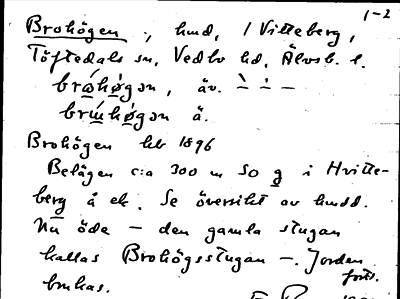 1-2
Brohögen , hmd, / Vitteberg,
Töftedals sn, Vedbo hd, Älvsb. l.
brǿhǿgən, äv. ` ´ –
brɯ́hǿgən ä.
Brohögen hb 1896
Belägen c:a 300 m SO g i Hvitte-
berg å ek. Se översikt av hmdd.
Nu öde – den gamla stugan
kallas Brohögsstugan –. Jorden
brukas. forts.